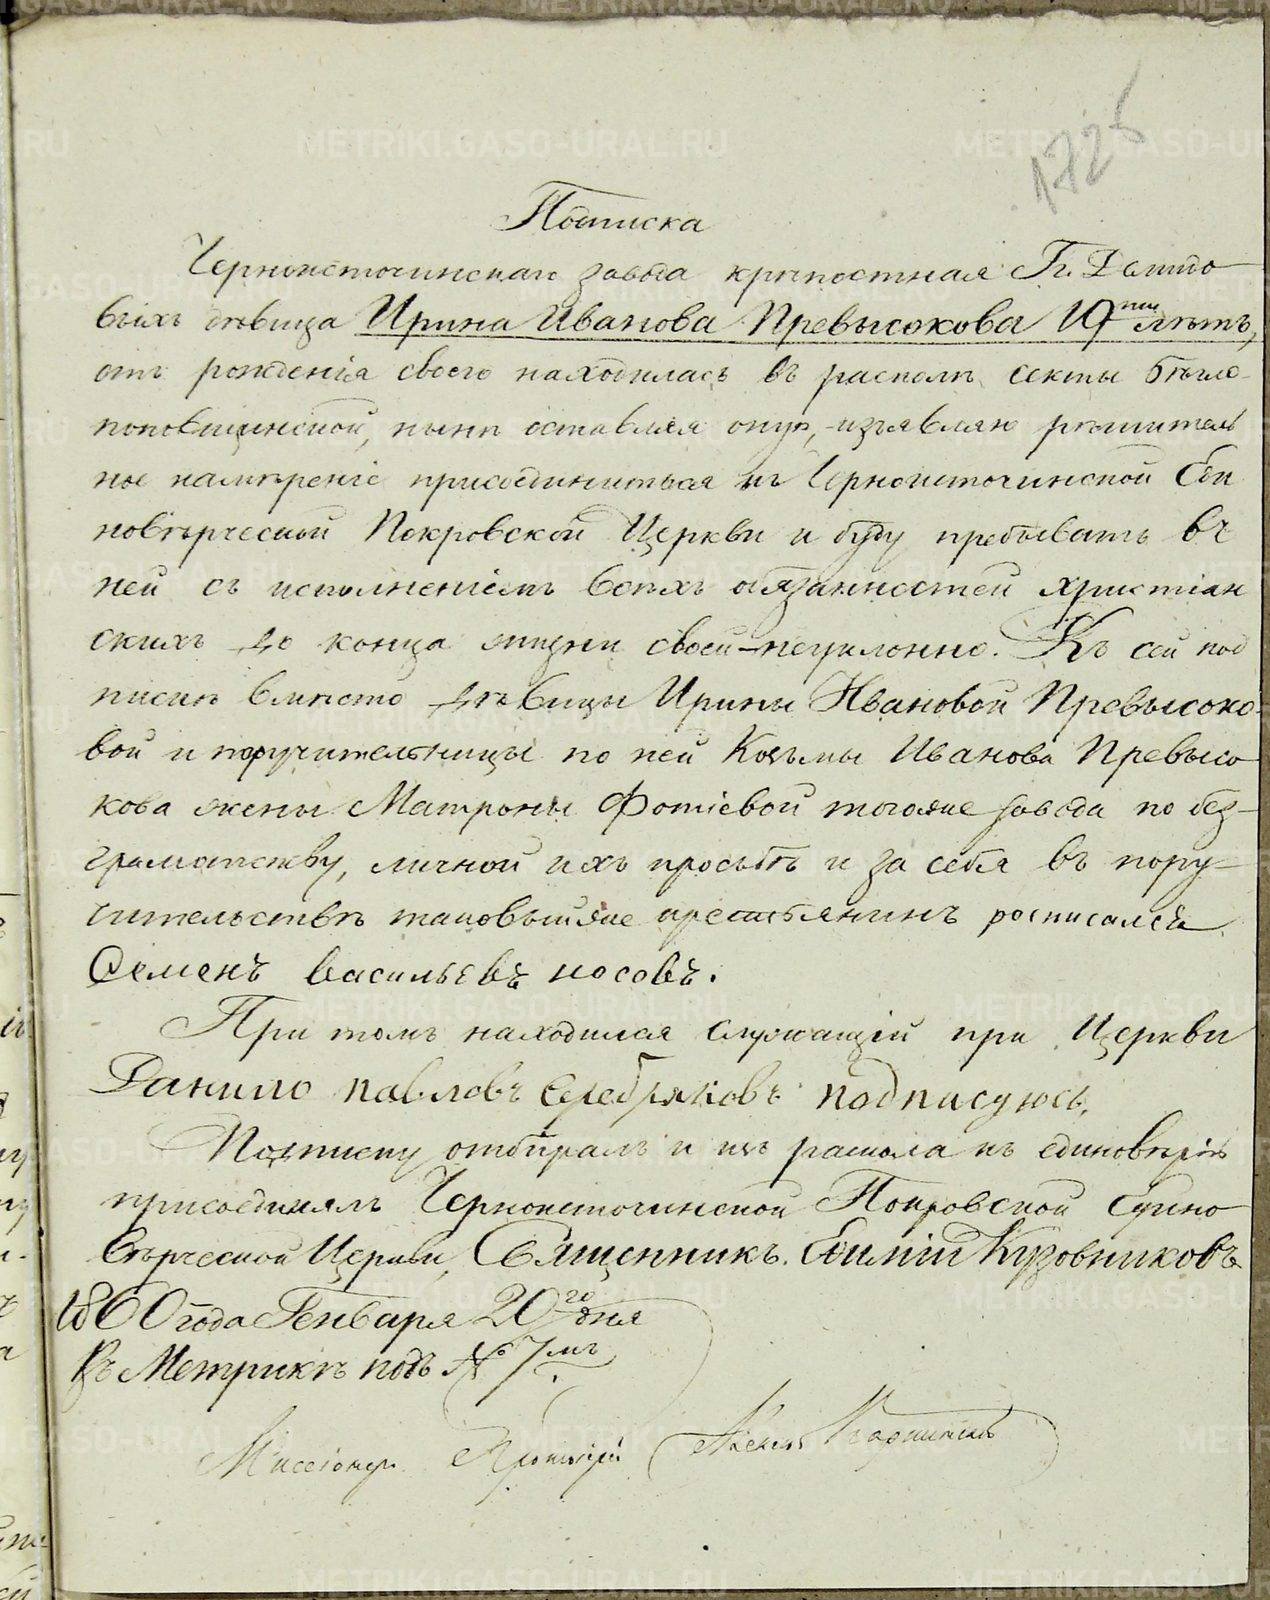 1725
Подписка
Черноисточинскаго завода крѣпостная Гг. Демидо
выхъ дѣвица Ирина Иванова Превысокова 19ти лѣтъ,
отъ рожденія своего находилась въ расколѣ секты бѣгло-
поповщинской, нынѣ оставляя оную, изъявляю рѣшитель
ное намѣреніе присоединиться къ Черноисточинской Еди
новѣрческой Покровской Церкви и буду пребывать въ
ней съ исполненіемъ всѣхъ обязанностей христіан
скихъ до конца жизни своей неуклонно. Къ сей под
пискѣ вмѣсто дѣвицы Ирины Ивановой Превысоко
вой и поручительницы по ней Козьмы Иванова Превысо
кова жены Матроны Фотіевой тогоже завода по без-
грамотству, личной ихъ просьбѣ и за себя въ пору-
чительствѣ таковыйже крестьянинъ росписался
Семенъ васильевъ носовъ.
При томъ находился служащій при Церкви
Данило павловъ Серебряковъ подписуюсь.
Подписку отбиралъ и изъ раскола къ единовѣрію
присоединялъ Черноисточинской Покровской Едино
вѣрческой Церкви, Священникъ Евимій Кузовниковъ
1860 года Генваря 20го дня
Въ Метрикѣ подъ № 7мъ
Миссіонеръ Протоіерей